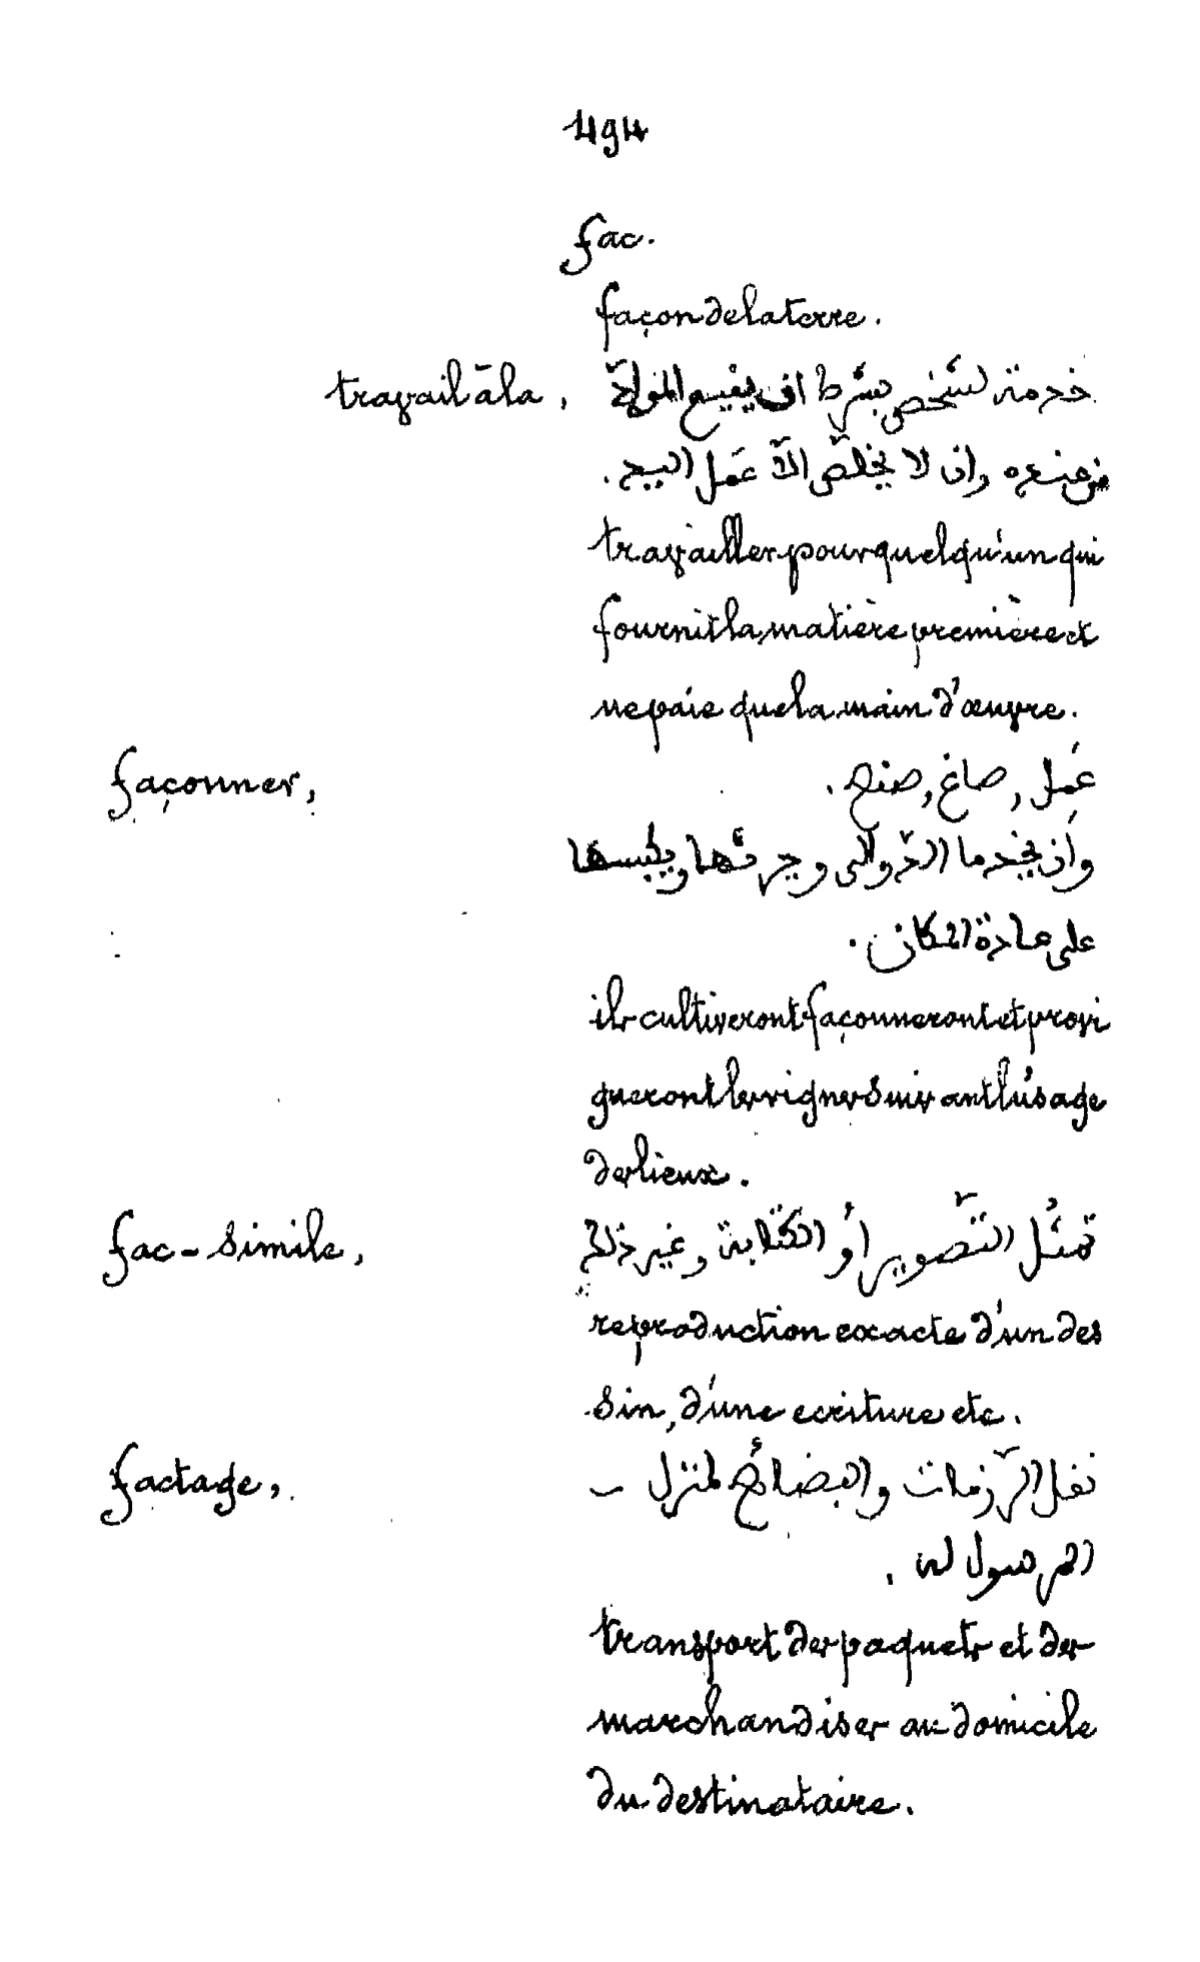 494
fac.
façon de la terre.
travail à la, خدمة لشخص بشرط ان يفيم المواد
من عنده وان لا يخلّص الاّ عَمل اليد.
travailler pour quelqu'un qui
fournit la matière première et
ne paie que la main d'œuvre.
façonner, عَمِل, صاغ, صنع.
وأن يخدما الدّوالي و ها ويكبسها
على عادة المكان.
ils cultiveront façonneront et provi
gneront les vignes suivant l'usage
des lieux.
fac-simile, تمثُّل التّصوير أو الكتابة وغير ذلك
reproduction exacte d'un des
sin, d'une ecriture etc.
factage, نفل الرّزمات والبضائع لمنزل –
المرسول له.
transport des paquets et des
marchandises au domicile
du destinataire.